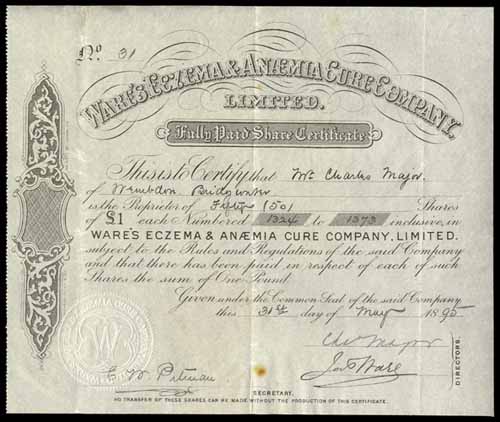 No. 31
WARE'S ECZEMA & ANÆMIA CURE COMPANY,
LIMITED.
Fully Paid Share Certificate
This is to Certify that Mr. Charles Major.
of Wembdon Bridgwater
is the Proprietor of Fifty (50) Shares
of £1 each Numbered 1324 to 1373 inclusive, in
WARE'S ECZEMA & ANÆMIA CURE COMPANY, LIMITED.
subject to the Rules and Regulations of the said Company
and that there has been paid in respect of each of such
Shares the sum of One Pound
Given under the Common Seal of the said Company
this 31st day of May 1895
Chas Major
Jas Ware
DIRECTORS.
E. W. Pitman
SECRETARY.
NO TRANSFER OF THESE SHARES CAN BE MADE WITHOUT THE PRODUCTION OF THIS CERTIFICATE.
W